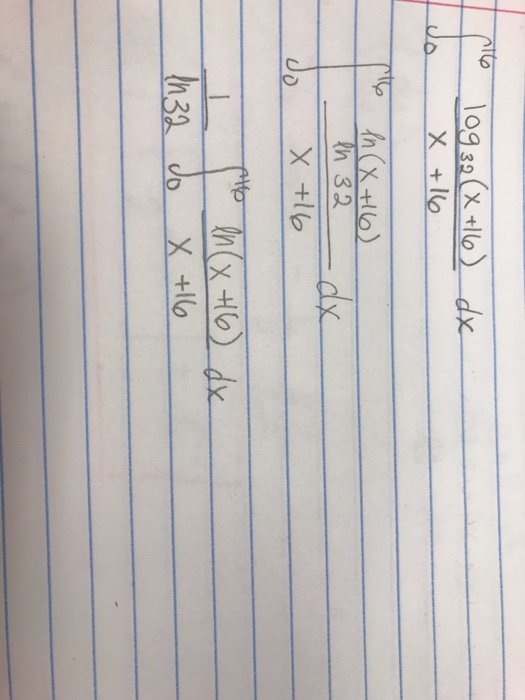 ∫₀¹⁶ log₃₂(x+16) / x+16 dx
∫₀¹⁶ (ln(x+16) / ln 32) / x+16 dx
1 / ln32 ∫₀¹⁶ ln(x+16) / x+16 dx